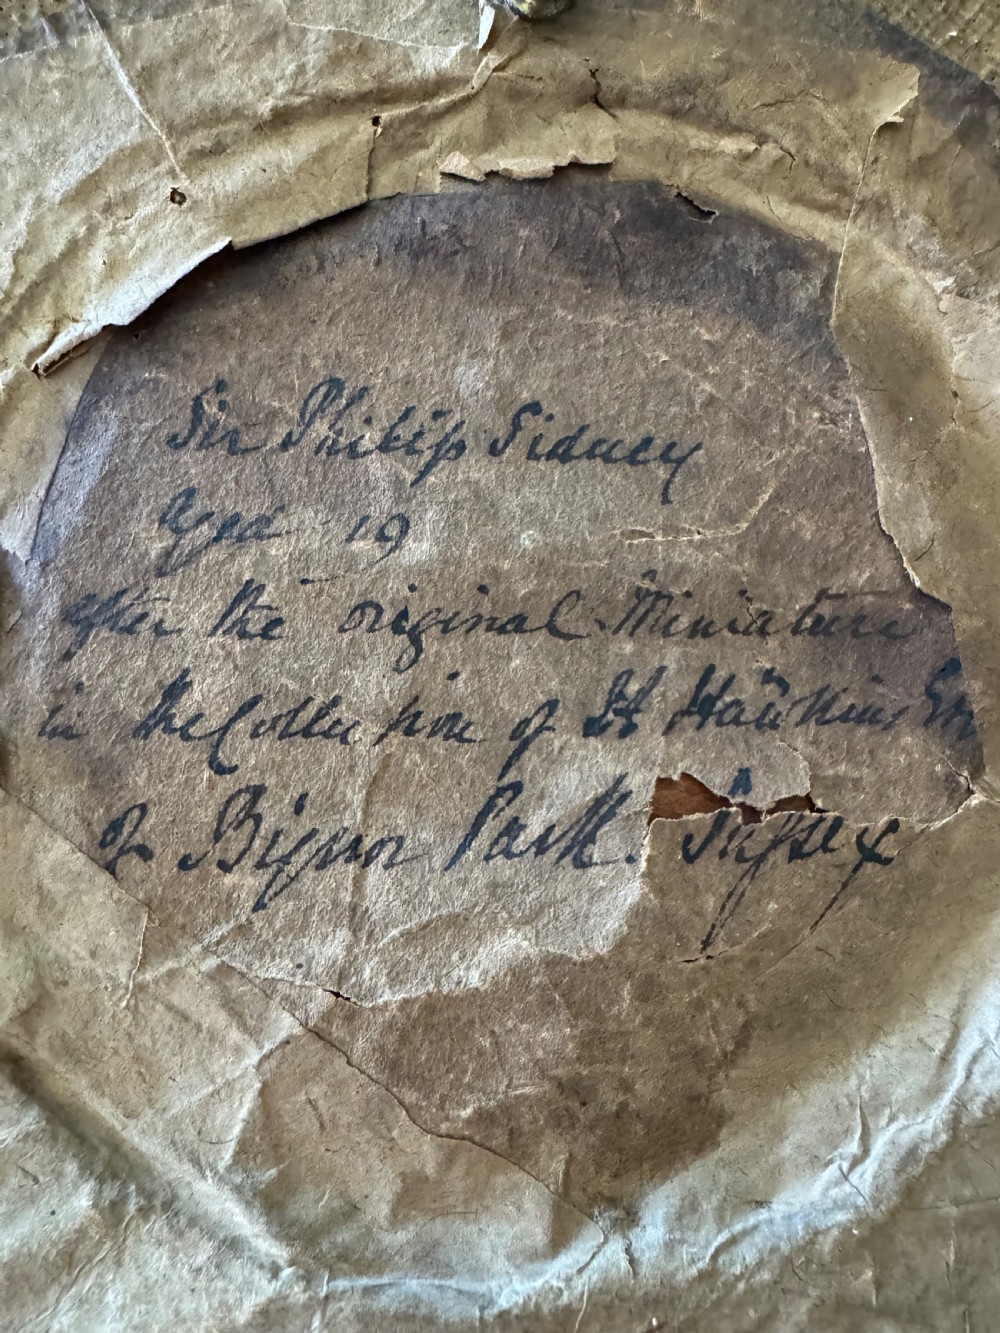 Sir Philip Sidney
Aged 19
after the original Miniature
in the Collection of Jt Hawkins Esq
of Bignor Park. Sussex